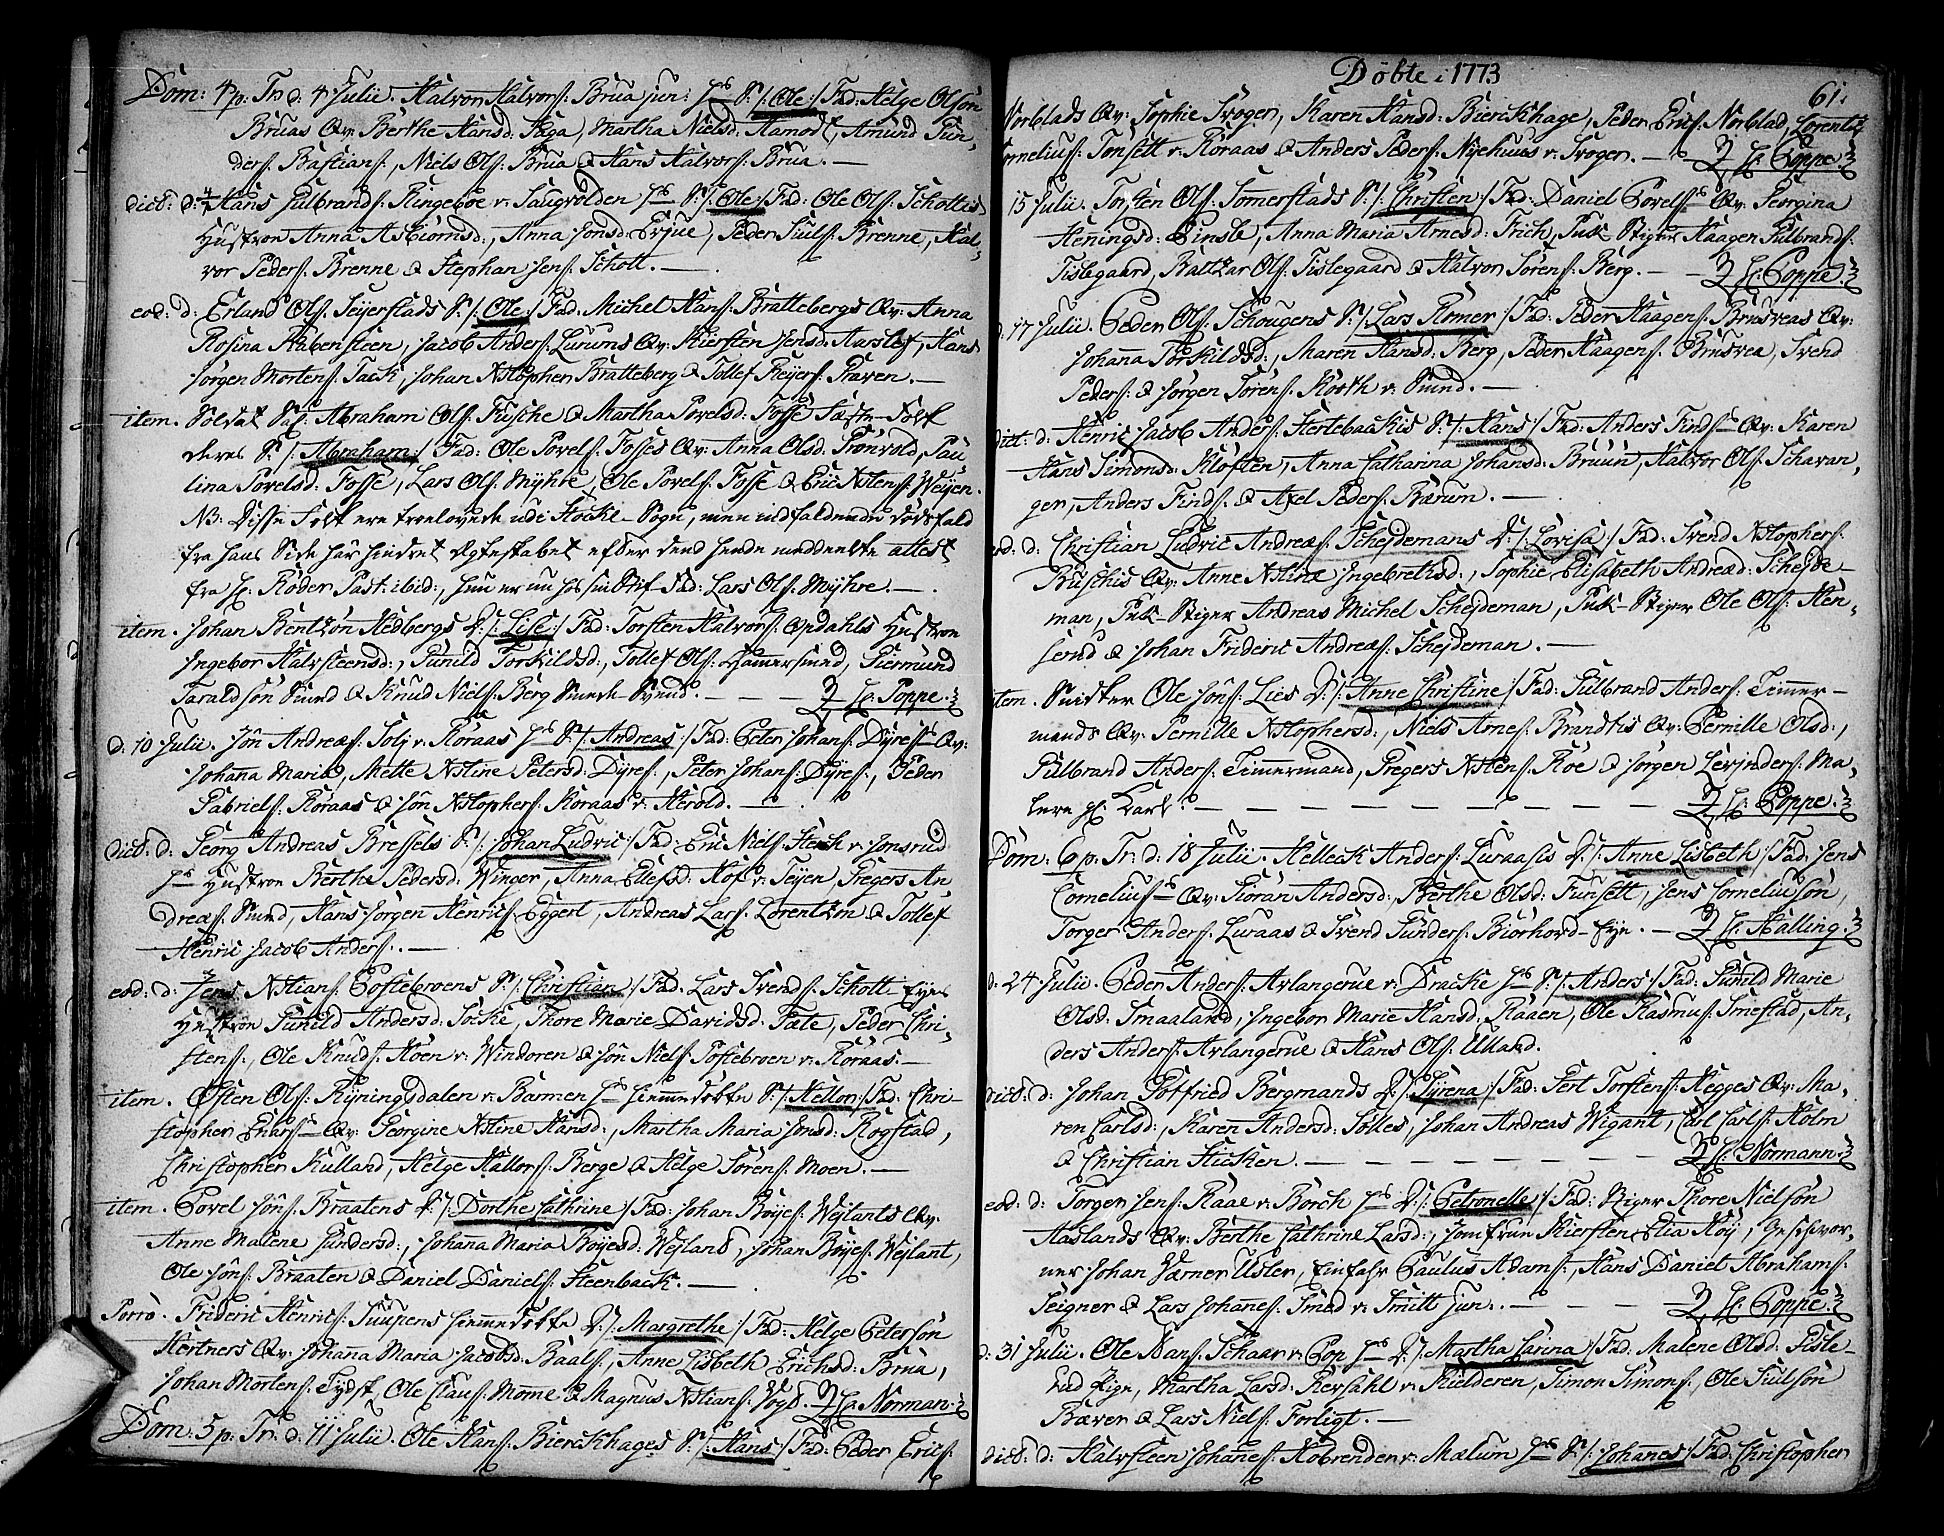 Dom: 4 p. Tr. d. 4 Julii. Halvor Halvors: Brua jun: S: /: Ole :/ Fad: Helge Olsøn
Bruas Qv: Berthe Hansd: Haga, Martha Nielsd: Aamodt, Amund Gun-
ders: Bastians:, Niels Ols: Brua & Hans Halvors: Brua. —
dict: d: Hans Gulbrands: Ringeboe v: Saugvolden S: /: Ole :/ Fad: Ole Ols: Schottis
Hustroe Anna Asbiornsd:, Anna Jonsd: Erjue, Peder Juuls: Brenne, Hal-
vor Peders: Brenne & Stephan Jens: Schott. —
eod: d: Erland Ols: Sejerstads S: /: Ole :/ Fad: Michel Hans: Brattebergs Qv: Anna
Rosina Rabensteen, Jacob Anders: Lurums Qv: Kiersten Jensd: Aarslef, Hans
Jørgen Mortens: Tack, Johan Xstopher Bratteberg & Tollef Reyers: Præven. —
item. Soldat Sal: Abraham Ols: Fusche & Martha Povelsd: Fosse
deres S: /: Abraham :/ Fad: Ole Povels: Fosses Qv: Anna Olsd: Grønvold, Pau
lina Povelsd: Fosse, Lars Ols: Myhre, Ole Povels: Fosse & Eric Xstens: Weyen.
NB: Disse Folk ere troelovede udi Hocke-Sogn, men indfaldende dødsfald
fra hans Side har hindret Ægteskabet efter dend hende meddeelte attest
fra H: Røder Past: ibid:, hun er nu hos sin Stif-Fad: Lars Ols: Myhre. —
item. Johan Bentzon Hedbergs D: /: Lise :/ Fad: Torsten Halvors: Opdahls Hustroe
Ingebor Halvsteensd:, Gunild Torskildsd:, Tollef Ols: Hammersmed, Giermund
Taraldsøn Smed & Knud Niels: Berg Smede-Svend. — — — H: Poppe.
d: 10 Julii. Jøn Andreas: Solj v: Roraas S: /: Andreas :/ Fad: Peter Johans: Dyres: Qv:
Johanna Maria, Mette Xstine Petersd: Dyres:, Peter Johans: Dyres:, Peder
Gabriels: Roraas & Jøn Xstophers: Roraas v: Herold. —
dict: d: Georg Andreas Bressels S: /: Johan Ludvic :/ Fad: Eric Niels: Stærch v: Jonsrud
Hustroe Berthe Pedersd: Winger, Anna Ellefsd: Hof v: Teyen, Gregers An
dreas: Smed, Hans Jørgen Henrics: Eggert, Andreas Lars: Lorentzen & Tollef
Henric Jacob Anders:. —
eod: d: Jens Xstians: Gostebroens S: /: Christian :/ Fad: Lars Svends: Schott-Eyes
Hustroe Gunild Andersd: Socke, Thore Marie Davidsd: Fæte, Peder Chri-
stens:, Ole Knuds: Moen v: Windoren & Jøn Niels: Gostebroen v: Roraas. —
item. Østen Ols: Ryningsdalen v: Barmen hiemmedøbte S: /: Hellor :/ Fad: Chri-
stopher Enars: Qv: Georgine Xstine Hansd:, Martha Maria Jonsd: Rogstad,
Christopher Kulland, Helge Hallors: Berge & Helge Sørens: Moen. —
item. Povel Jøns: Braatens D: /: Dorthe Cathrine :/ Fad: Johan Boyes: Wejlants Qv:
Anne Malene Gundersd:, Johanna Maria Boyesd: Wejland, Johan Boyes: Wejlant,
Ole Jøns: Braaten & Daniel Daniels: Steenback. —
Porro. Frideric Henrics: Juupens hiemmedøbte D: /: Margrethe :/ Fad: Helge Petersøn
Hertners Qv: Johanna Maria Jacobsd: Baals:, Anne Lisbeth Erichsd: Brua,
Johan Mortens: Tydsk, Ole Claus: Momme & Magnus Xstians: Vogd. H: Norman.
Dom: 5 p. Tr. d. 11 Julii. Ole Hans: Bierckhages S: /: Hans :/ Fad: Peder Erics:
Døbte i 1773
61.
Norblads Qv: Sophie Svogen, Karen Hansd: Bierckhage, Peder Erics: Norblad, Lorentz
Cornelius: Tonsett v: Roraas & Anders Peders: Nyehuus v: Svogen. — H: Poppe.
15 Julii. Torsten Ols: Somerstads S: /: Christen :/ Fad: Daniel Povels: Qv: Georgina
Henningsd: Einsle, Anna Maria Arnesd: Frich, Puk-Stiger Haagen Gulbrands:
Gislegaard, Baltzar Ols: Gislegaard & Halvor Sørens: Berg. — H: Poppe.
d: 17 Julii. Peder Ols: Schougens S: /: Lars Romer :/ Fad: Peder Haagens: Brusveas Qv:
Johanna Torskildsd:, Maren Hansd: Berg, Peder Haagens: Brusvea, Svend
Peders: & Jørgen Sørens: Rooth v: Smed. —
dict: d: Henric Jacob Anders: Hertebackis S: /: Hans :/ Fad: Anders Finds: Qv: Karen
Hans Simonsd: Kloften, Anna Catharina Johansd: Bruun, Halvor Ols: Schavan-
ger, Anders Finds: & Axel Peders: Bærum. —
eod: d: Christian Ludvic Andreas: Schejdemans D: /: Lovisa :/ Fad: Svend Xstophers:
Buschis Qv: Anne Xstine Ingebretsd:, Sophie Elisabeth Andread: Schejde-
man, Puk-Stiger Andreas Michel Schejdeman, Puk-Stiger Ole Ols: Hen-
serud & Johan Frideric Andreas: Schejdeman. —
item. Snidker Ole Jøns: Lies D: /: Anne Christine :/ Fad: Gulbrand Anders: Timmer-
mands Qv: Pernille Xstophersd:, Niels Arnes: Brandtis Qv: Pernille Olsd:,
Gulbrand Anders: Timmermand, Gregers Xstens: Roe & Jørgen Levjnders: Ma-
lere K: Karl. — — — — — — — — H: Poppe.
Dom: 6 p. Tr. d: 18 Julii. Helleck Anders: Luraasis D: /: Anne Lisbeth :/ Fad: Jens
Cornelius: Qv: Gioran Andersd:, Berthe Olsd: Funsett, Jens Corneliusøn,
Torger Anders: Luraas & Svend Gunders: Biørhovd-Eye. — H: Halling.
d: 24 Julii. Peder Anders: Avlangerue v: Dracke S: /: Anders :/ Fad: Gunild Marie
Olsd: Smaaland, Ingebor Marie Hansd: Raaen, Ole Rasmus: Smestad, An-
ders Anders: Avlangerue & Hans Ols: Ulland.
dict: d: Johan Gotfried Bergmands D: /: Syrena :/ Fad: Gert Torstens: Hegges Qv: Ma-
ren Carlsd:, Karen Andersd: Solles, Johan Andreas Wigant, Carl Carls: Holm
& Christian Hicken. — — — — — — H: Normann.
eod: d: Torger Jens: Raae v: Borch D: /: Petronelle :/ Fad: Stiger Thore Nielsøn
Aaslands Qv: Berthe Cathrine Larsd:, Jomfrue Kiersten Elia Høy, Geschwor-
ner Johan Værner Usler, Einfahr Paulus Adams:, Hans Daniel Abrahams:
Seigner & Lars Johanes: Smed v: Smitt jun:. — — — H: Poppe.
d: 31 Julii. Ole Hans: Schaar v: Pop D: /: Martha Carina :/ Fad: Malene Olsd: Gisle-
rud Eige, Martha Larsd: Rersahl v: Kielderen, Simon Simons:, Ole Juulsøn
Bæver & Lars Niels: Forligt. —
dict: d: Halvsteen Johannes: Hobrenden v: Mælum S: /: Johannes :/ Fad: Christopher